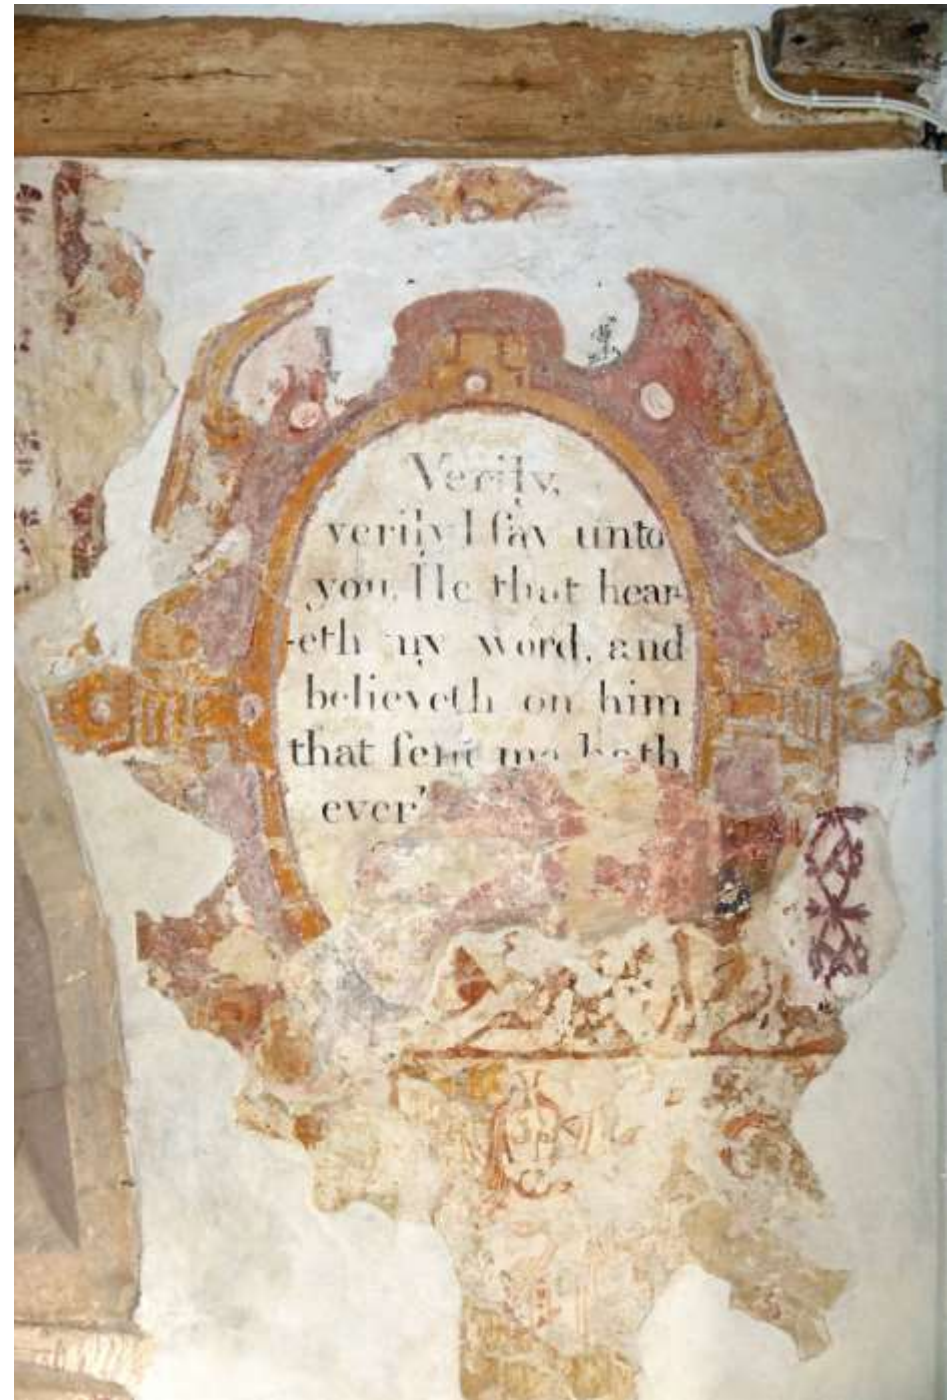 Verily,
verily I ſay unto
you, He that hear-
-eth my word, and
believeth on him
that ſent me hath
ever